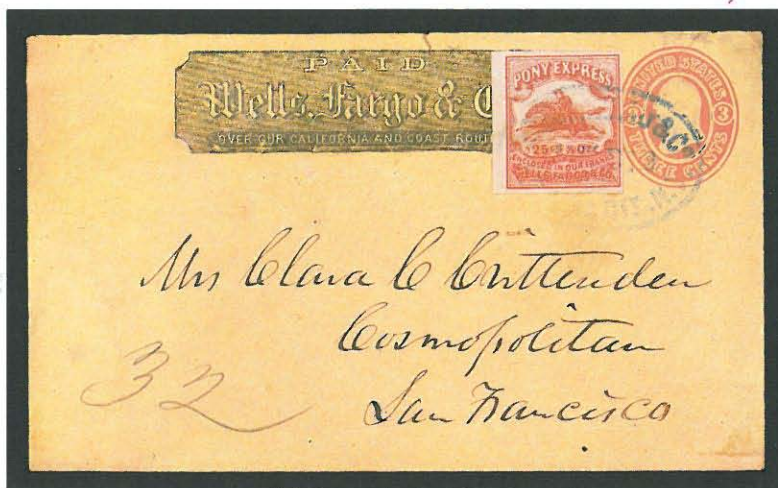 PAID
Wells, Fargo & C
OVER OUR CALIFORNIA AND COAST ROUT
PONY EXPRESS
ENCLOSED IN OUR FRANKS
WELLS FARGO & CO.
UNITED STATES
3
THREE CENTS
Mrs Clara C Crittenden
Cosmopolitan
San Francisco
32